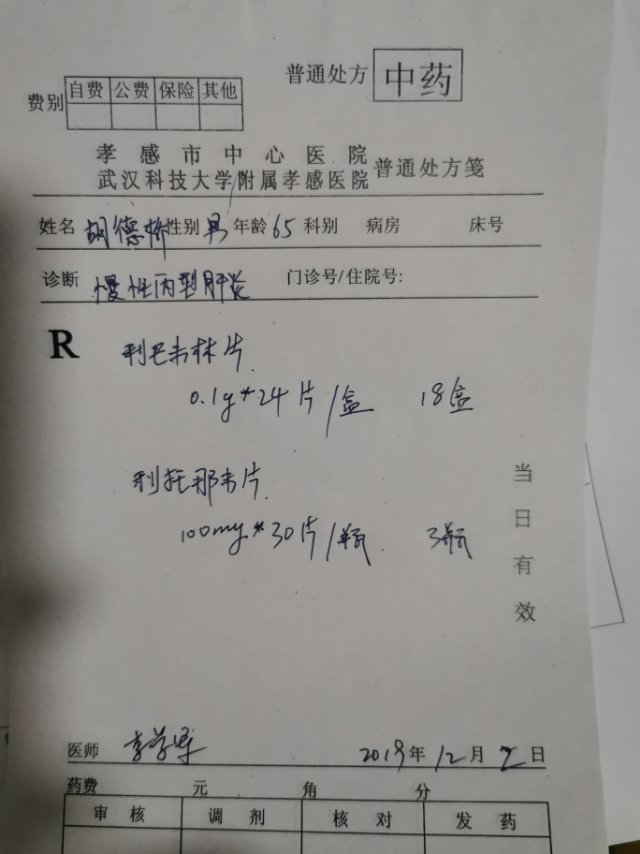 普通处方 中药
费别 自费 公费 保险 其他
孝感市中心医院
武汉科技大学附属孝感医院 普通处方笺
姓名 胡德桥 性别 男 年龄 65 科别 病房 床号
诊断 慢性丙型肝炎 门诊号/住院号:
R 利巴韦林片
0.1g*24片/盒 18盒
利托那韦片
100mg*30片/瓶 3瓶
当日有效
医师 李学军 2019年12月2日
药费 元 角 分
审核 调剂 核对 发药